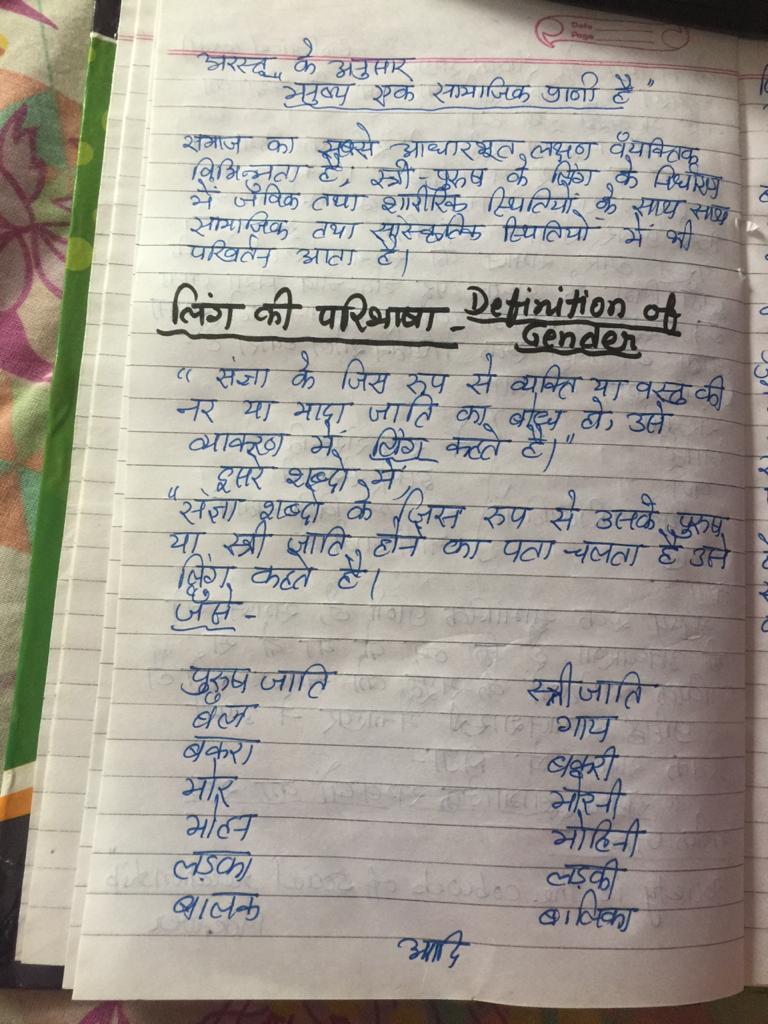 Date
Page
अरस्तू के अनुसार
"मनुष्य एक सामाजिक प्राणी है"
समाज का सबसे आधारभूत लक्षण वैयक्तिक
विभिन्नता है, स्त्री-पुरुष के लिंग के निर्धारण
में जैविक तथा शारीरिक स्थितियों के साथ साथ
सामाजिक तथा सांस्कृतिक स्थितियों में भी
परिवर्तन आता है।
लिंग की परिभाषा - Definition of
Gender
"संज्ञा के जिस रूप से व्यक्ति या वस्तु की
नर या मादा जाति का बोध हो, उसे
व्याकरण में लिंग कहते हैं।"
दूसरे शब्दों में,
"संज्ञा शब्दों के जिस रूप से उसके पुरुष
या स्त्री जाति होने का पता चलता है उसे
लिंग कहते हैं।
जैसे -
पुरुष जाति स्त्री जाति
बैल गाय
बकरा बकरी
मोर मोरनी
मोहन मोहिनी
लड़का लड़की
बालक बालिका
आदि